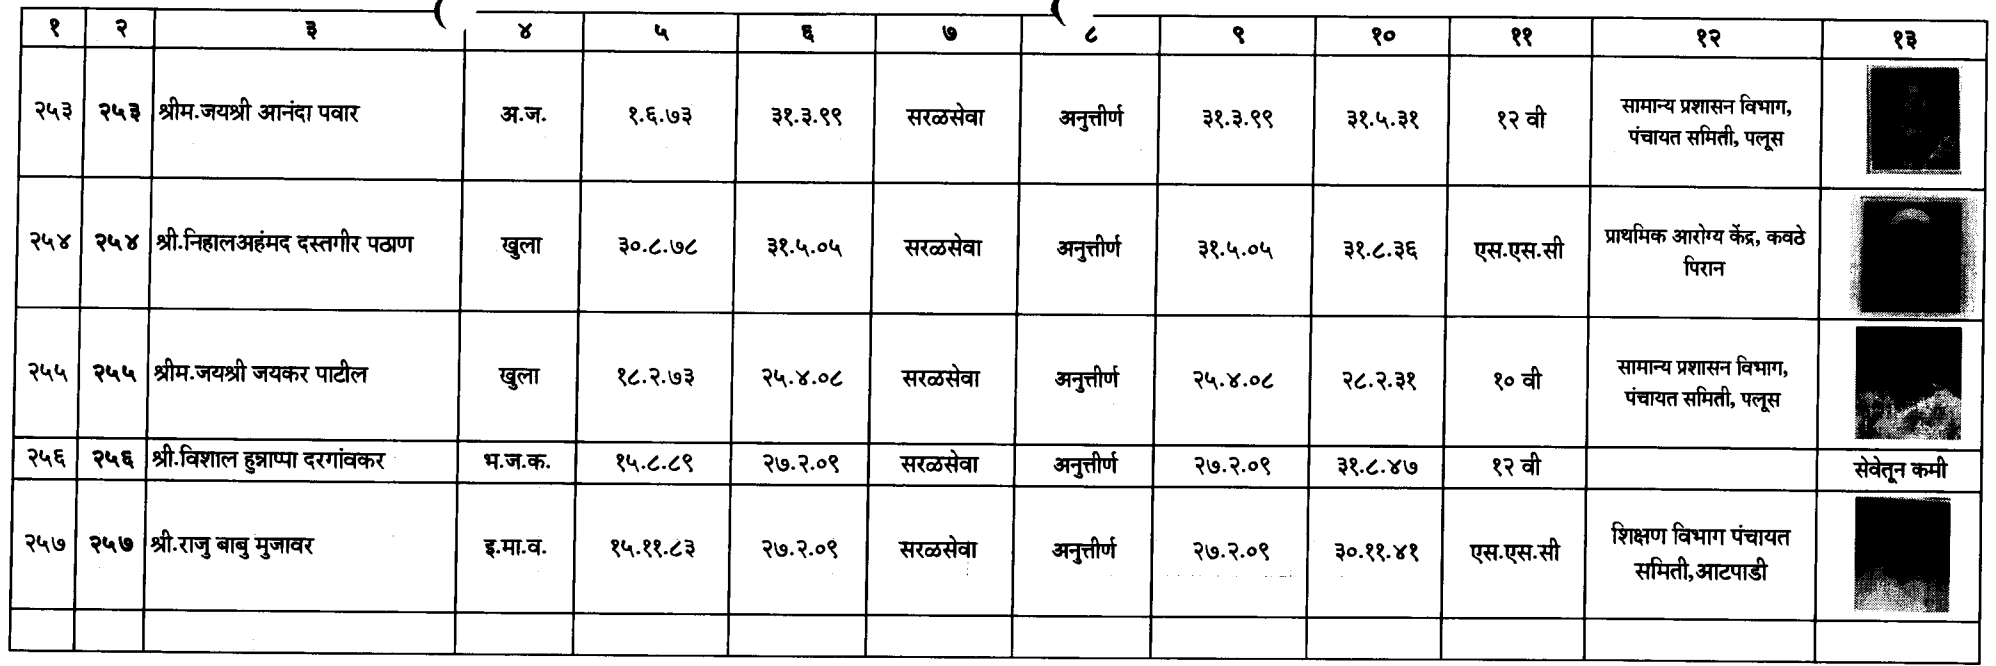 १ २ ३ ४ ५ ६ ७ ८ ९ १० ११ १२ १३
२५३ २५३ श्रीम.जयश्री आनंदा पवार अ.ज. १.६.७३ ३१.३.९९ सरळसेवा अनुत्तीर्ण ३१.३.९९ ३१.५.३१ १२ वी सामान्य प्रशासन विभाग,
पंचायत समिती, पलूस
२५४ २५४ श्री.निहालअहंमद दस्तगीर पठाण खुला ३०.८.७८ ३१.५.०५ सरळसेवा अनुत्तीर्ण ३१.५.०५ ३१.८.३६ एस.एस.सी प्राथमिक आरोग्य केंद्र, कवठे
पिरान
२५५ २५५ श्रीम.जयश्री जयकर पाटील खुला १८.२.७३ २५.४.०८ सरळसेवा अनुत्तीर्ण २५.४.०८ २८.२.३१ १० वी सामान्य प्रशासन विभाग,
पंचायत समिती, पलूस
२५६ २५६ श्री.विशाल हुन्नाप्पा दरगांवकर भ.ज.क. १५.८.८९ २७.२.०९ सरळसेवा अनुत्तीर्ण २७.२.०९ ३१.८.४७ १२ वी सेवेतून कमी
२५७ २५७ श्री.राजु बाबु मुजावर इ.मा.व. १५.११.८३ २७.२.०९ सरळसेवा अनुत्तीर्ण २७.२.०९ ३०.११.४१ एस.एस.सी शिक्षण विभाग पंचायत
समिती,आटपाडी